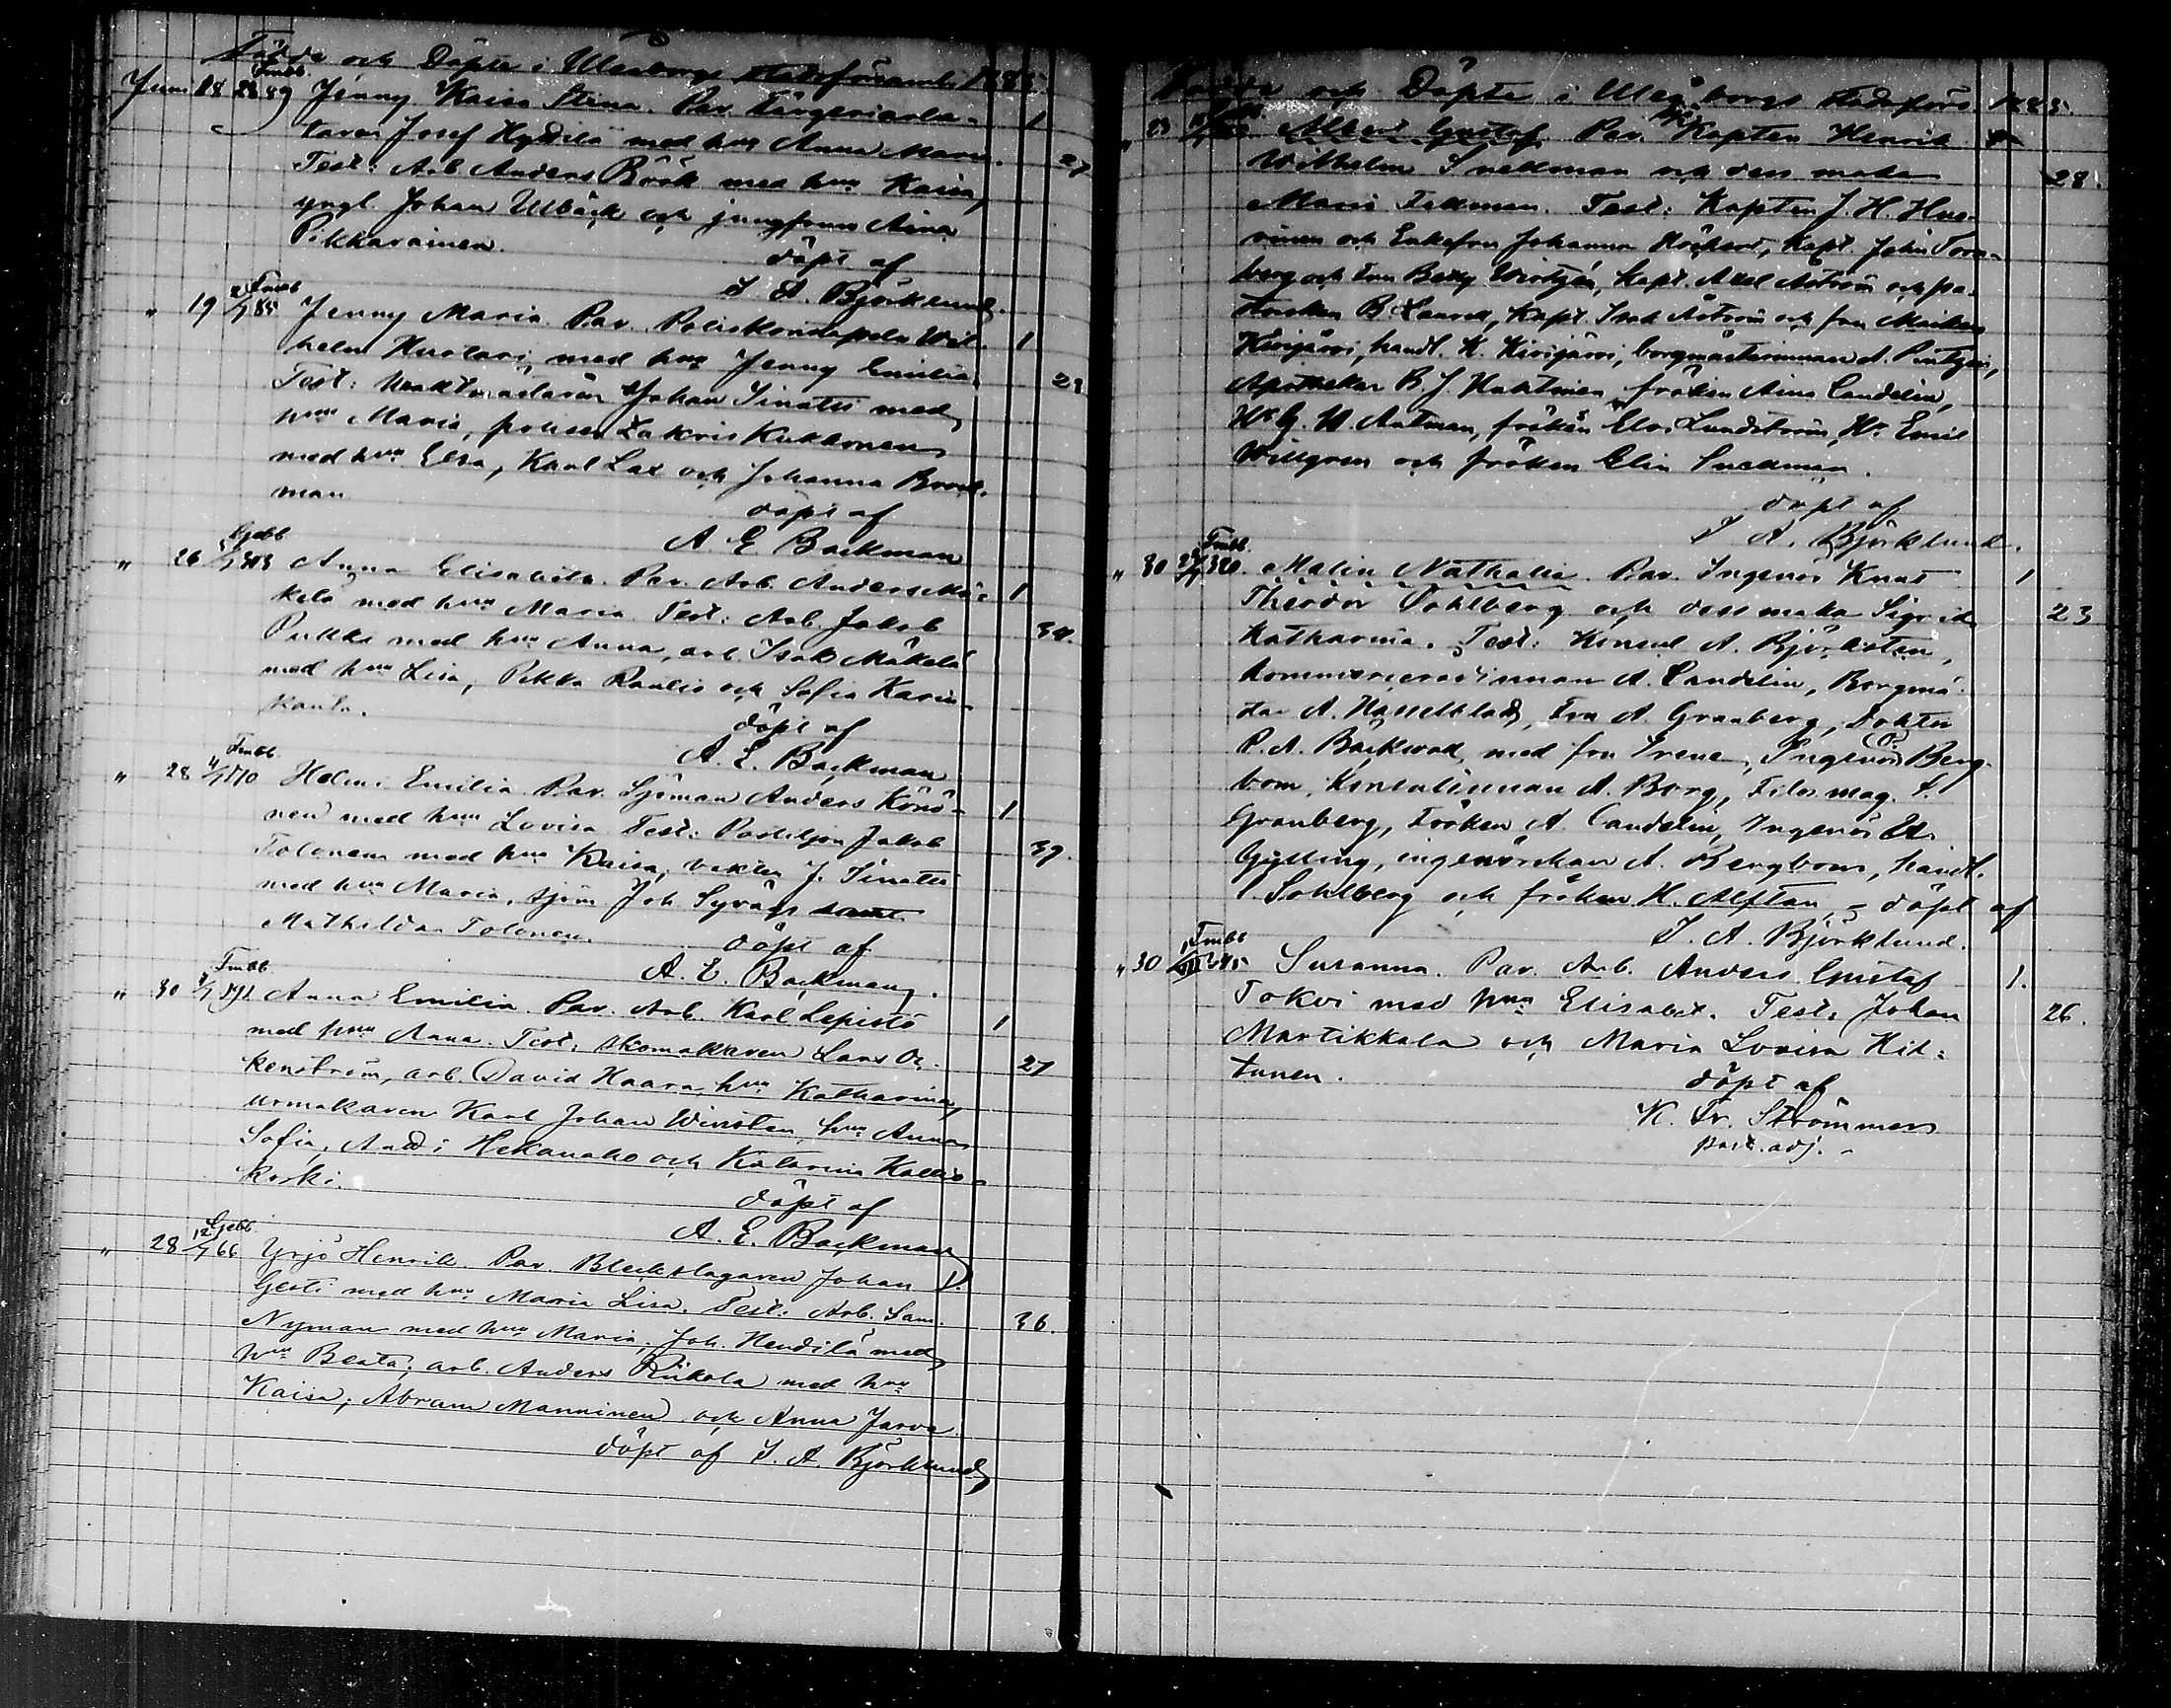 Födde och Döpte i Uleåborgs stadsförsamb. 1885.
Juni 18 28 Fmbb. 89 Jenny Kaisa Stina. Par. Färgeriarbe- 1
taren Josef Hydilä med hu Anna Maria. 27
Test: Arb. Anders Böök med hu Kaisa,
yngl. Johan Ulbäck och jungfrun Aina
Pikkarainen. döpt af
I. A. Björklund.
" 19 Fmbb Jenny Maria. Par. Poliskonstapeln Wil- 1
helm Huotari, med hu Jenny Emilia. 29
Test: Johan Sinatti med
hu Maria, polisen Zakris Kukkonen
med hu Elsa, Karl Lax och Johanna
man döpt af
A. E. Backman
" 26 Gjebb Anna Elisabeth. Par. Arb. Anders Mä- 1
kelä med hu Maria. Test: Arb. Jakob 34.
Pukki med hu Anna, arb. Isak Mäkelä
med hu Lisa, Pekka Raulio och Sofia Karin-
kanta. döpt af
A. E. Backman
" 28 Fmbb. Helmi Emilia. Par. Sjöman Anders Könö- 1
nen med hu Lovisa. Test: Postiljon Jakob 39.
Tolonen med hu Kaisa, vakten J. Sinatti
med hu Maria, sjöm Joh Syväjs samt
Mathilda Tolonen. döpt af
A. E. Backman.
" 30 Fmbb. Anna Emilia. Par. Arb. Karl Lepistö 1
med hu Anna. Test: skomakaren Lars Oc- 27
kenström, arb. David Haara, hu Katharina,
urmakaren Karl Johan Winsten, hu Anna
Sofia, And: Hekanaho och Katarina Kallio-
koski. döpt af
A. E. Backman
" 28 12/7 Gjebb. 66 Yrjö Henrik. Par. Bleckslagaren Johan 1.
Gesti med hu Maria Lisa. Test: Arb. Sam. 36.
Nyman med hu Maria, Joh. Hendilä med
hu Beata, arb. Anders Riikola med hu
Kaisa, Abram Manninen och Anna Jarva.
döpt af I. A. Björklund
Födde och Döpte i Uleåborgs stadsförs. 1885.
" 23 Albert Gustaf. Par. Sjö Kapten Henrik
Wilhelm Snellman och dess maka 28.
Maria Fellman. Test: Kapten J. H.
och Enkefru Johanna Höckert, Kapt. John Torn-
berg och Fru Betty Wirtzén, Kapt. Axel Åström och pa-
storskan B. Laurell, Kapt. Isak Åström och fru Maikki
Kivijärvi, handl. K. Kivijärvi, borgmästarinnan A.
Apothekar B. J. Huhtinen, fröken Aina Candelin,
Hr G. W. Antman, fröken Elvi Lundström, Hr Emil
Willgren och fröken Elin Snellman.
döpt af
I. A. Björklund.
" 30 Fmbb. 320. Malin Nathalia. Par. Ingeniör Knut 1
Theodor Öohlberg och dess maka Sigrid 23
Katharina. Test: Konsul A. Björksten,
kommerserådinnan A. Candelin, Borgmä-
star A. Hasselblad, Fru A. Granberg, Doktor
P. A. Bäckwall, med fru Irene, Ingeniör O. Berg-
bom, Konsulinnan A. Borg, Filos. mag. L.
Granberg, Fröken A. Candelin, Ingeniör
Gylling, ingeniörskan A. Bergbom, handl.
Sohlberg och fröken H. Alftan, - döpt af
I. A. Björklund.
" 30 Fmbb Susanna. Par. Arb. Anders Gustaf 1.
Tokvi med hu Elisabet. Test: Johan 26.
Martikkala och Maria Lovisa Hil-
tunen. döpt af
K. Fr. Strömmer
past. adj. -